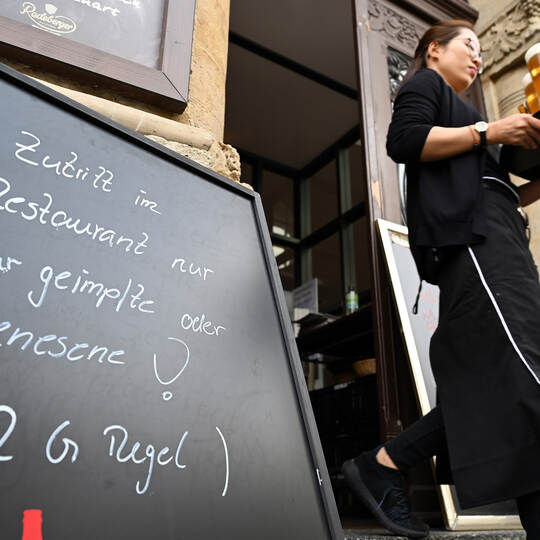 Radeberger
Zutritt im
Restaurant nur
geimpfte oder
enesene !
2 G Regel )